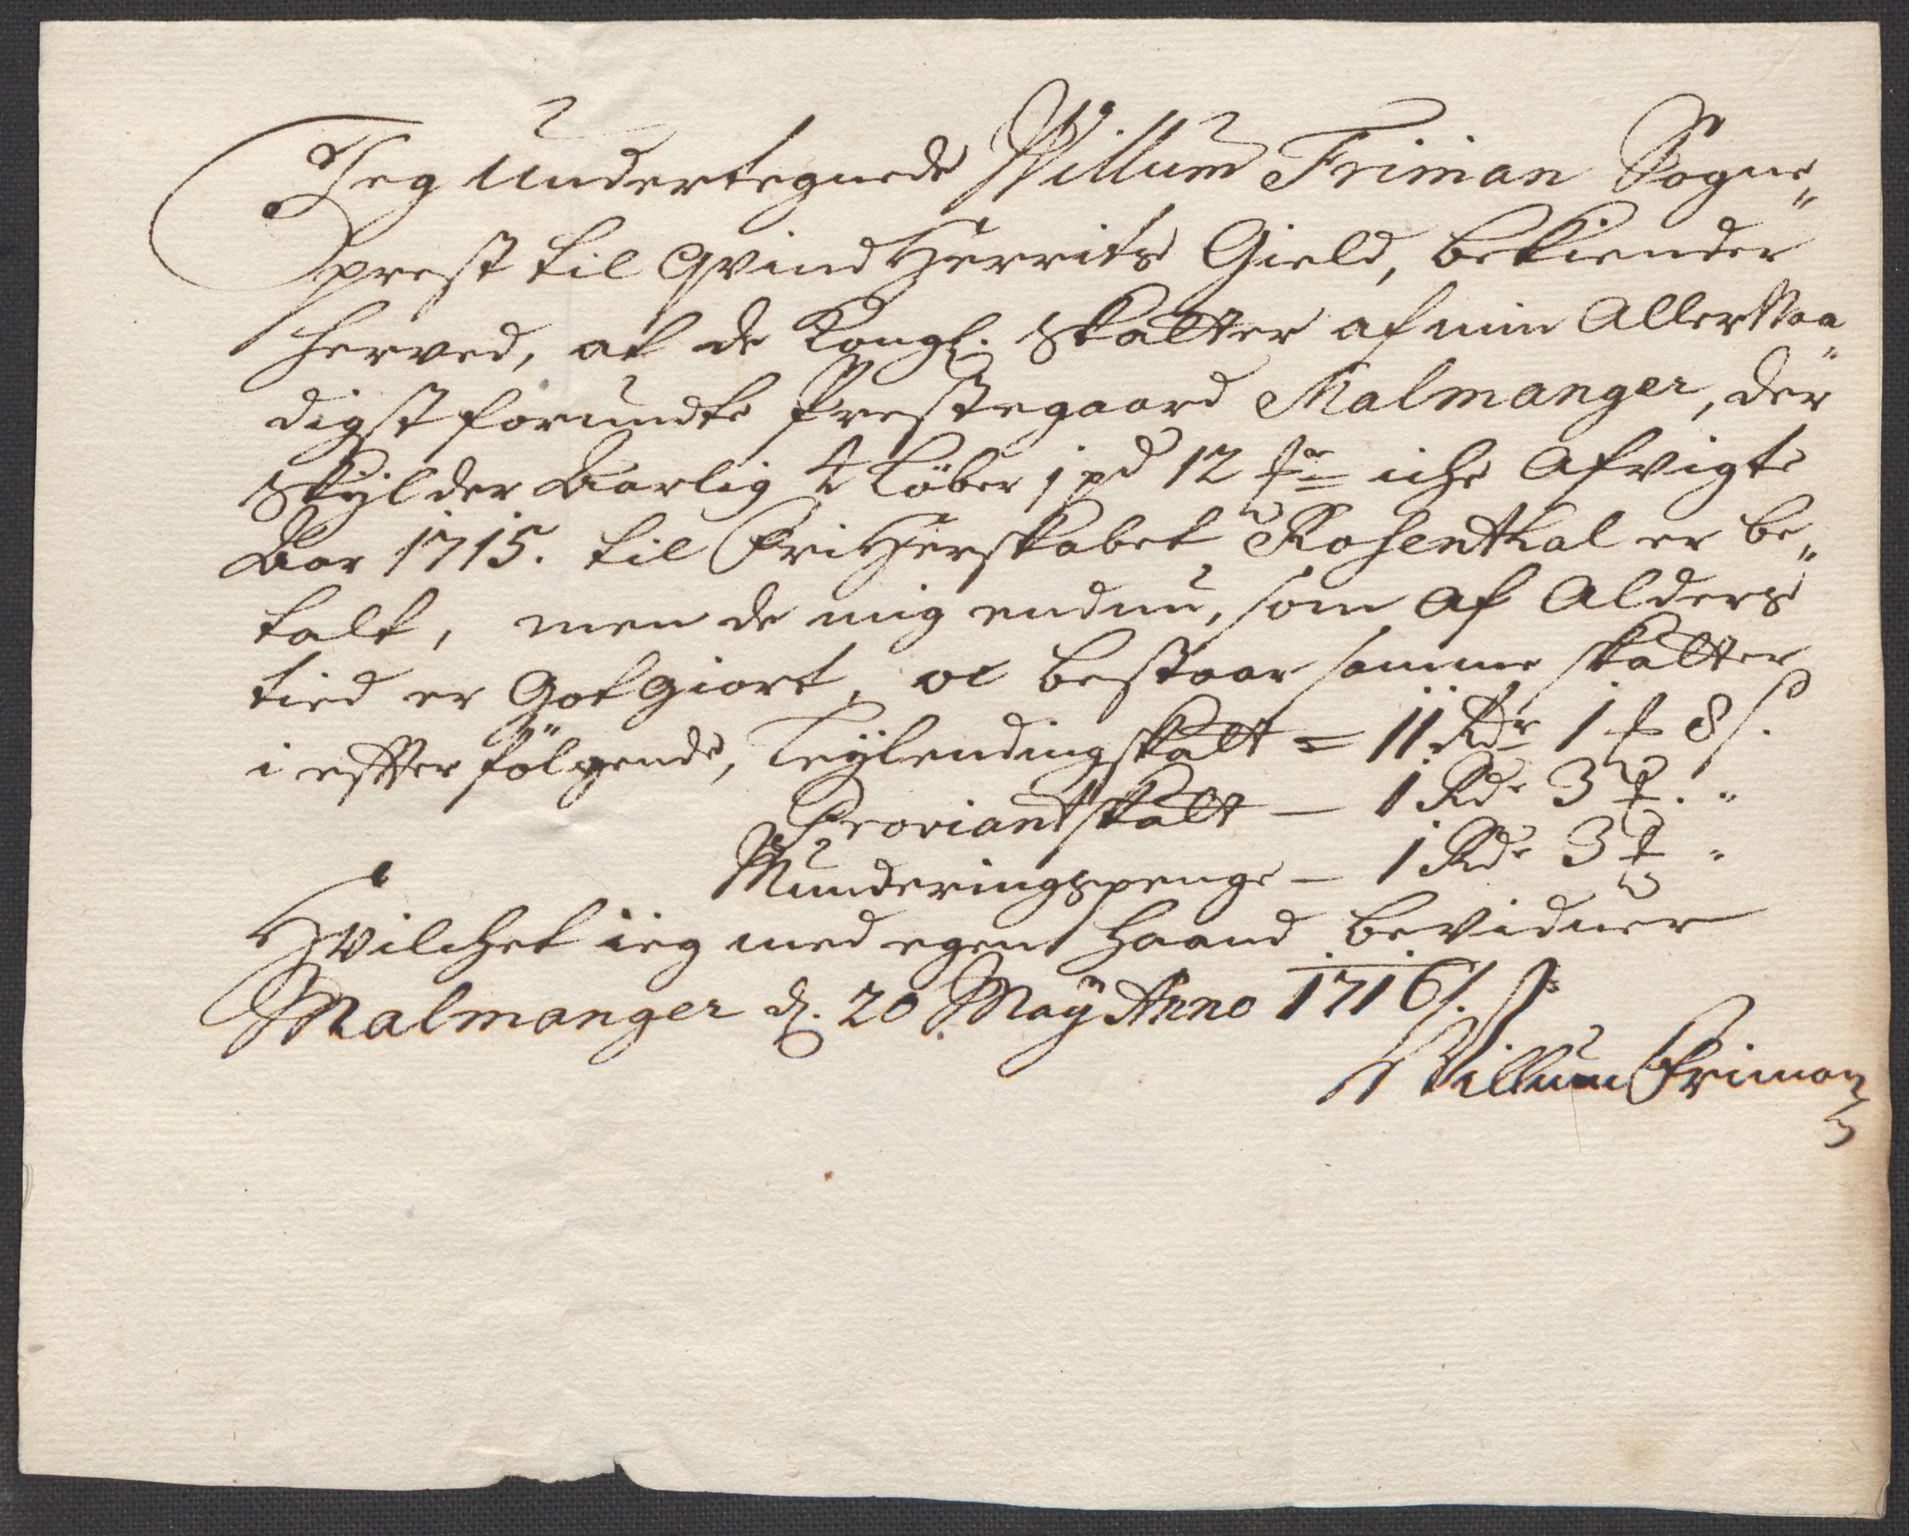 Jeg Undertegnede Willum Friman Sogne„
prest til Qvindherrits Gield, bekiender
herved, at de Kongl. Skatter af min AllerNaa„
digst forundte Prestegaard Malmanger, der
Skylder Aarlig Løber 1 pd 12 iche Afvigte
Aar 1715. til FriHerskabet Rosenthal er be„
talt, men de mig endnu, som af Alders
tied er Gotgiort, oc bestaar samme skatter
i effterfølgende, Leylendingskatt = 11 Rdr 1 8 s.
Proviantskatt – 1 Rdr 3 . „
Munderingspenge – 1 Rdr 3 „
Hvilchet ieg med egen Haand bevidner
Malmanger d. 20 May Anno 1716.
Willum Friman